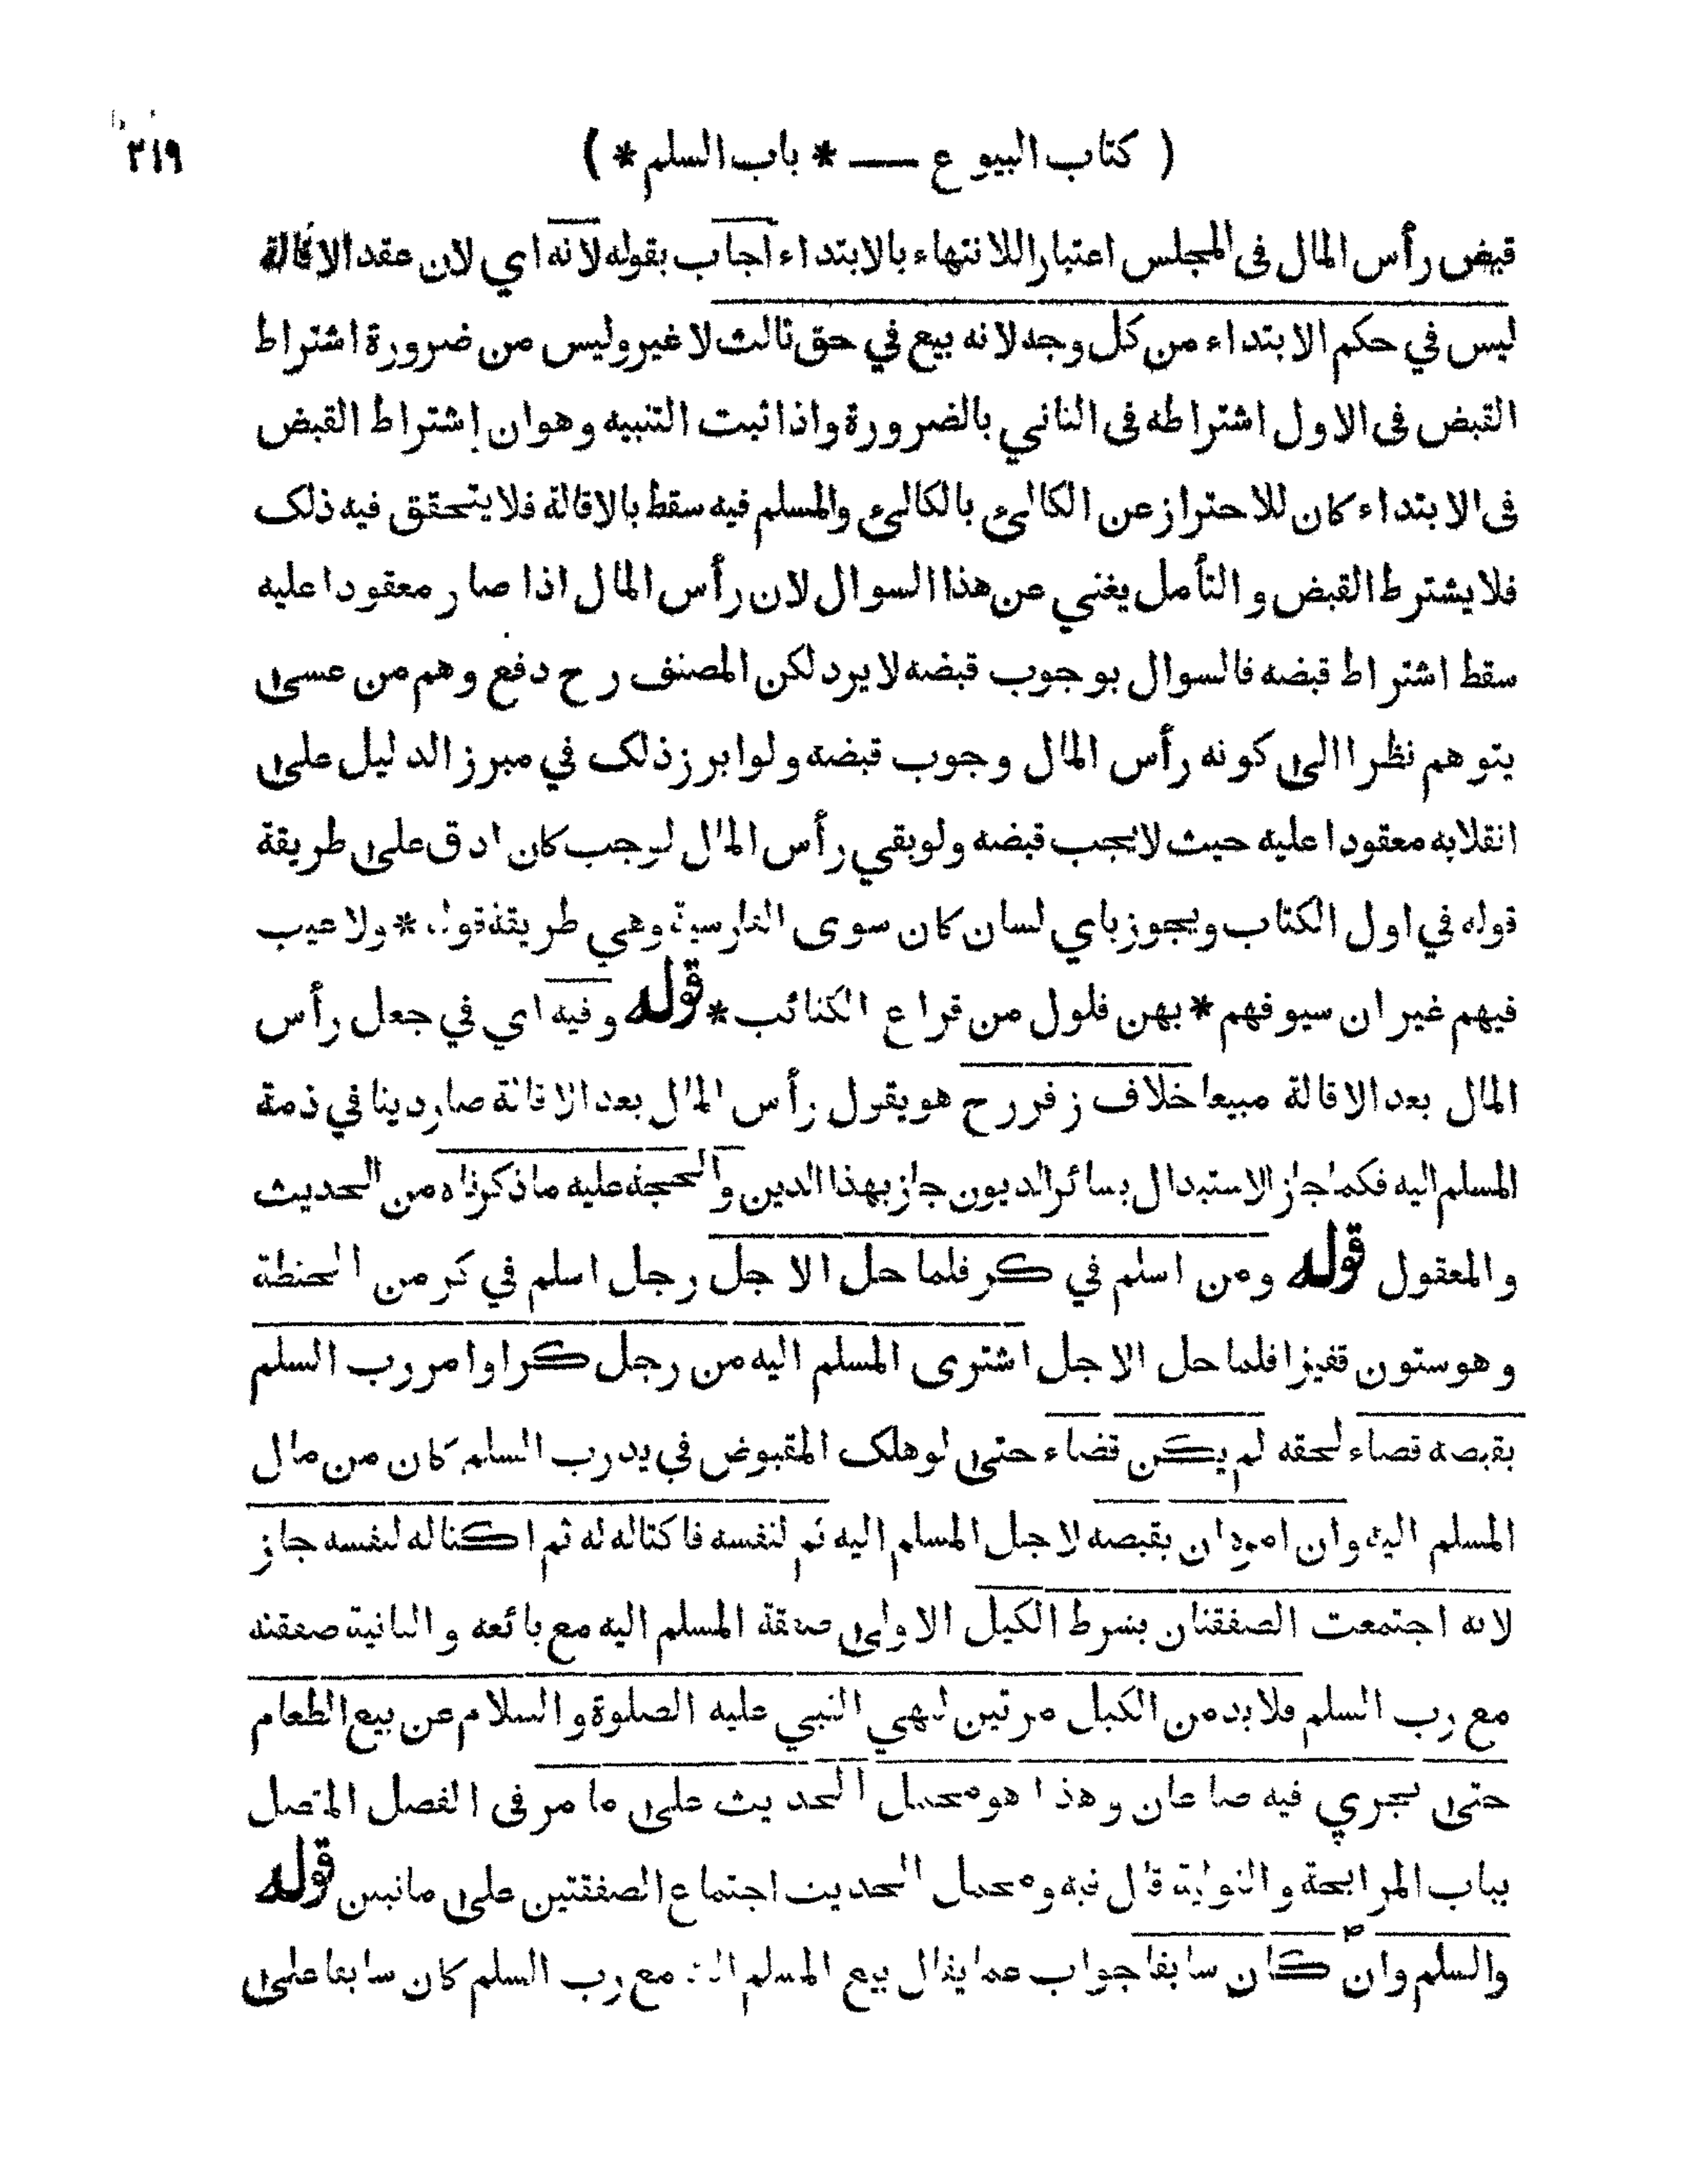 ( كتاب البيوع — * باب السلم * )
٣١٩
قبض رأس المال فى المجلس اعتبارا للانتهاء بالابتداء اجاب بقوله لانه اي لان عقد الاقالة
ليس في حكم الابتداء من كل وجه لانه بيع في حق ثالث لا غير وليس من ضرورة اشتراط
القبض فى الاول اشتراطه فى الثاني بالضرورة واذا ثبت التنبيه وهو ان إشتراط القبض
فى الابتداء كان للاحتراز عن الكالئ بالكالئ والمسلم فيه سقط بالاقالة فلا يتحقق فيه ذلك
فلا يشترط القبض و التأمل يغني عن هذا السوال لان رأس المال اذا صار معقودا عليه
سقط اشتراط قبضه فالسوال بوجوب قبضه لا يرد لكن المصنف رح دفع وهم من عسى
يتوهم نظرا الى كونه رأس المال وجوب قبضه ولو ابرز ذلك في مبرز الدليل على
انقلابه معقودا عليه حيث لا يجب قبضه ولو بقي رأس المال لوجب كان ادق على طريقة
قوله في اول الكتاب ويجوز باي لسان كان سوى الفارسية وهي طريقة قوله * ولا عيب
فيهم غير ان سيوفهم * بهن فلول من قراع الكتائب * قوله وفيه اي في جعل رأس
المال بعد الاقالة مبيعا خلاف زفر رح هو يقول رأس المال بعد الاقالة صار دينا في ذمة
المسلم اليه فكما جاز الاستبدال بسائر الديون جاز بهذا الدين والحجة عليه ما ذكرناه من الحديث
و المعقول قوله ومن اسلم في كر فلما حل الاجل رجل اسلم في كر من الحنطة
وهو ستون قفيزا فلما حل الاجل اشترى المسلم اليه من رجل كرا وامر رب السلم
بقبضه قضاء لحقه لم يكن قضاء حتى لو هلك المقبوض في يد رب السلم كان من مال
المسلم اليه وان امره ان يقبضه لاجل المسلم اليه ثم لنفسه فاكتاله له ثم اكتاله لنفسه جاز
لانه اجتمعت الصفقتان بشرط الكيل الاولى صفقة المسلم اليه مع بائعه و الثانية صفقته
مع رب السلم فلا بد من الكيل مرتين لنهي النبي عليه الصلوة و السلام عن بيع الطعام
حتى يجري فيه صاعان وهذا هو محمل الحديث على ما مر فى الفصل المتصل
بباب المرابحة و التولية قال فيه ومحمل الحديث اجتماع الصفقتين على ما نبين قوله
والسلم وان كان سابقا جواب عما يقال بيع المسلم اليه مع رب السلم كان سابقا على